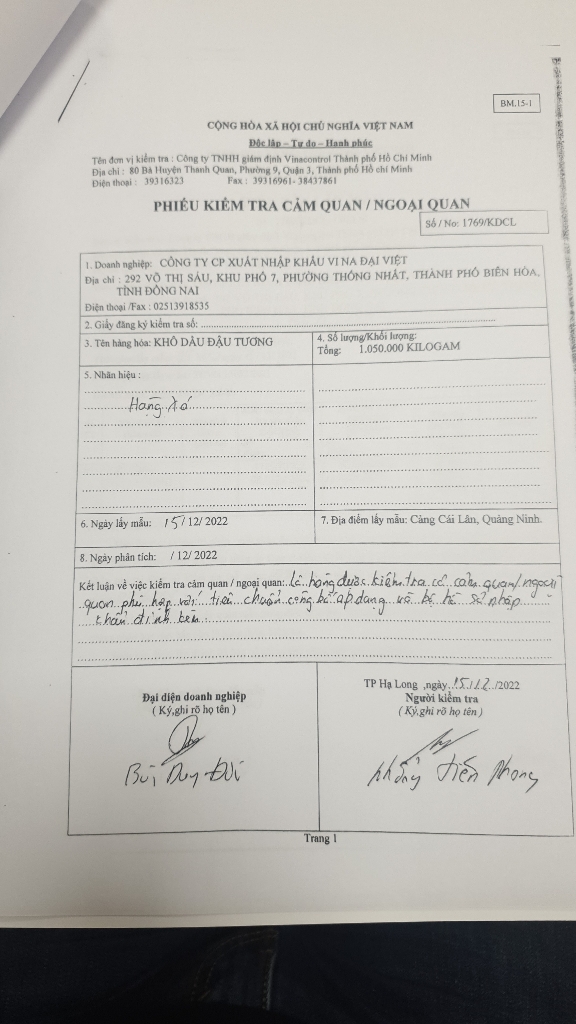 BM.15-1
CỘNG HÒA XÃ HỘI CHỦ NGHĨA VIỆT NAM
Độc lập – Tự do – Hạnh phúc
Tên đơn vị kiểm tra : Công ty TNHH giám định Vinacontrol Thành phố Hồ Chí Minh
Địa chỉ : 80 Bà Huyện Thanh Quan, Phường 9, Quận 3, Thành phố Hồ chí Minh
Điện thoại : 39316323 Fax : 39316961- 38437861
PHIẾU KIỂM TRA CẢM QUAN / NGOẠI QUAN
Số / No: 1769/KDCL
1. Doanh nghiệp: CÔNG TY CP XUẤT NHẬP KHẨU VI NA ĐẠI VIỆT
Địa chỉ : 292 VÕ THỊ SÁU, KHU PHỐ 7, PHƯỜNG THỐNG NHẤT, THÀNH PHỐ BIÊN HÒA,
TỈNH ĐỒNG NAI
Điện thoại /Fax : 02513918535
2. Giấy đăng ký kiểm tra số:
3. Tên hàng hóa: KHÔ DẦU ĐẬU TƯƠNG
4. Số lượng/Khối lượng:
Tổng: 1.050.000 KILOGAM
5. Nhãn hiệu :
Hàng xá
6. Ngày lấy mẫu: 15/12/2022
7. Địa điểm lấy mẫu: Cảng Cái Lân, Quảng Ninh.
8. Ngày phân tích: /12/2022
Kết luận về việc kiểm tra cảm quan / ngoại quan: Lô hàng được kiểm tra có cảm quan/ngoại
quan phù hợp với tiêu chuẩn công bố áp dụng và hồ sơ nhập
đính kèm.
TP Hạ Long ,ngày 15/12/2022
Đại diện doanh nghiệp
( Ký,ghi rõ họ tên )
Người kiểm tra
( Ký,ghi rõ họ tên )
Bùi Duy
Khổng Tiến Phong
Trang 1